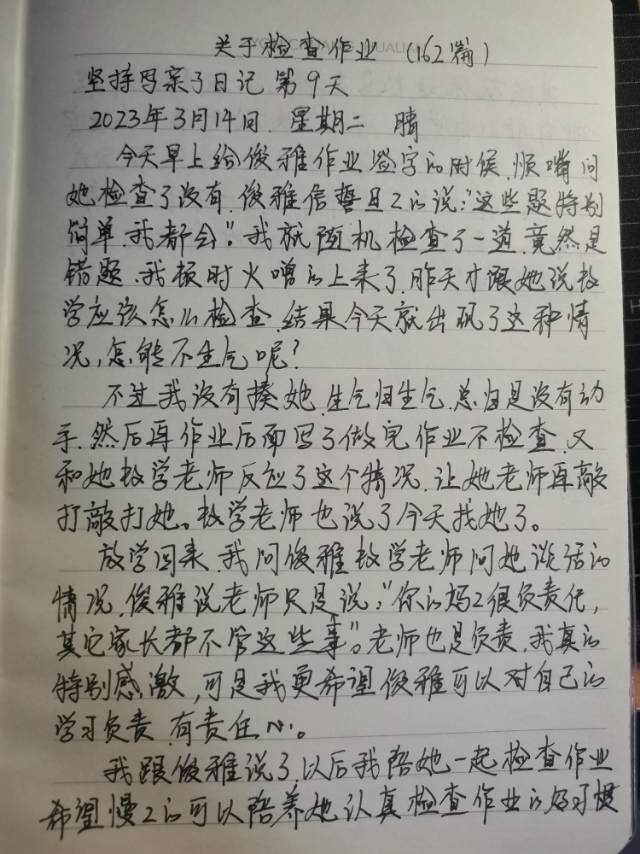 关于检查作业 (162篇)
坚持写亲子日记 第9天
2023年3月14日. 星期二 晴
今天早上给俊雅作业签字的时候,顺嘴问
她检查了没有,俊雅信誓旦2的说:"这些题特别
简单,我都会"。我就随机检查了一道,竟然是
错题,我顿时火噌的上来了,昨天才跟她说数
学应该怎么检查,结果今天就出现了这种情
况,怎能不生气呢?
不过我没有揍她,生气归生气,总归是没有动
手,然后再作业后面写了做完作业不检查,又
和她数学老师反应了这个情况,让她老师再敲
打敲打她。数学老师也说了今天找她了。
放学回来,我问俊雅数学老师问她谈话的
情况,俊雅说老师只是说:"你的妈2很负责任,
其它家长都不管这些事"。老师也是负责,我真的
特别感激,可是我更希望俊雅可以对自己的
学习负责,有责任心。
我跟俊雅说了,以后我陪她一起检查作业
希望慢2的可以陪养她认真检查作业的好习惯